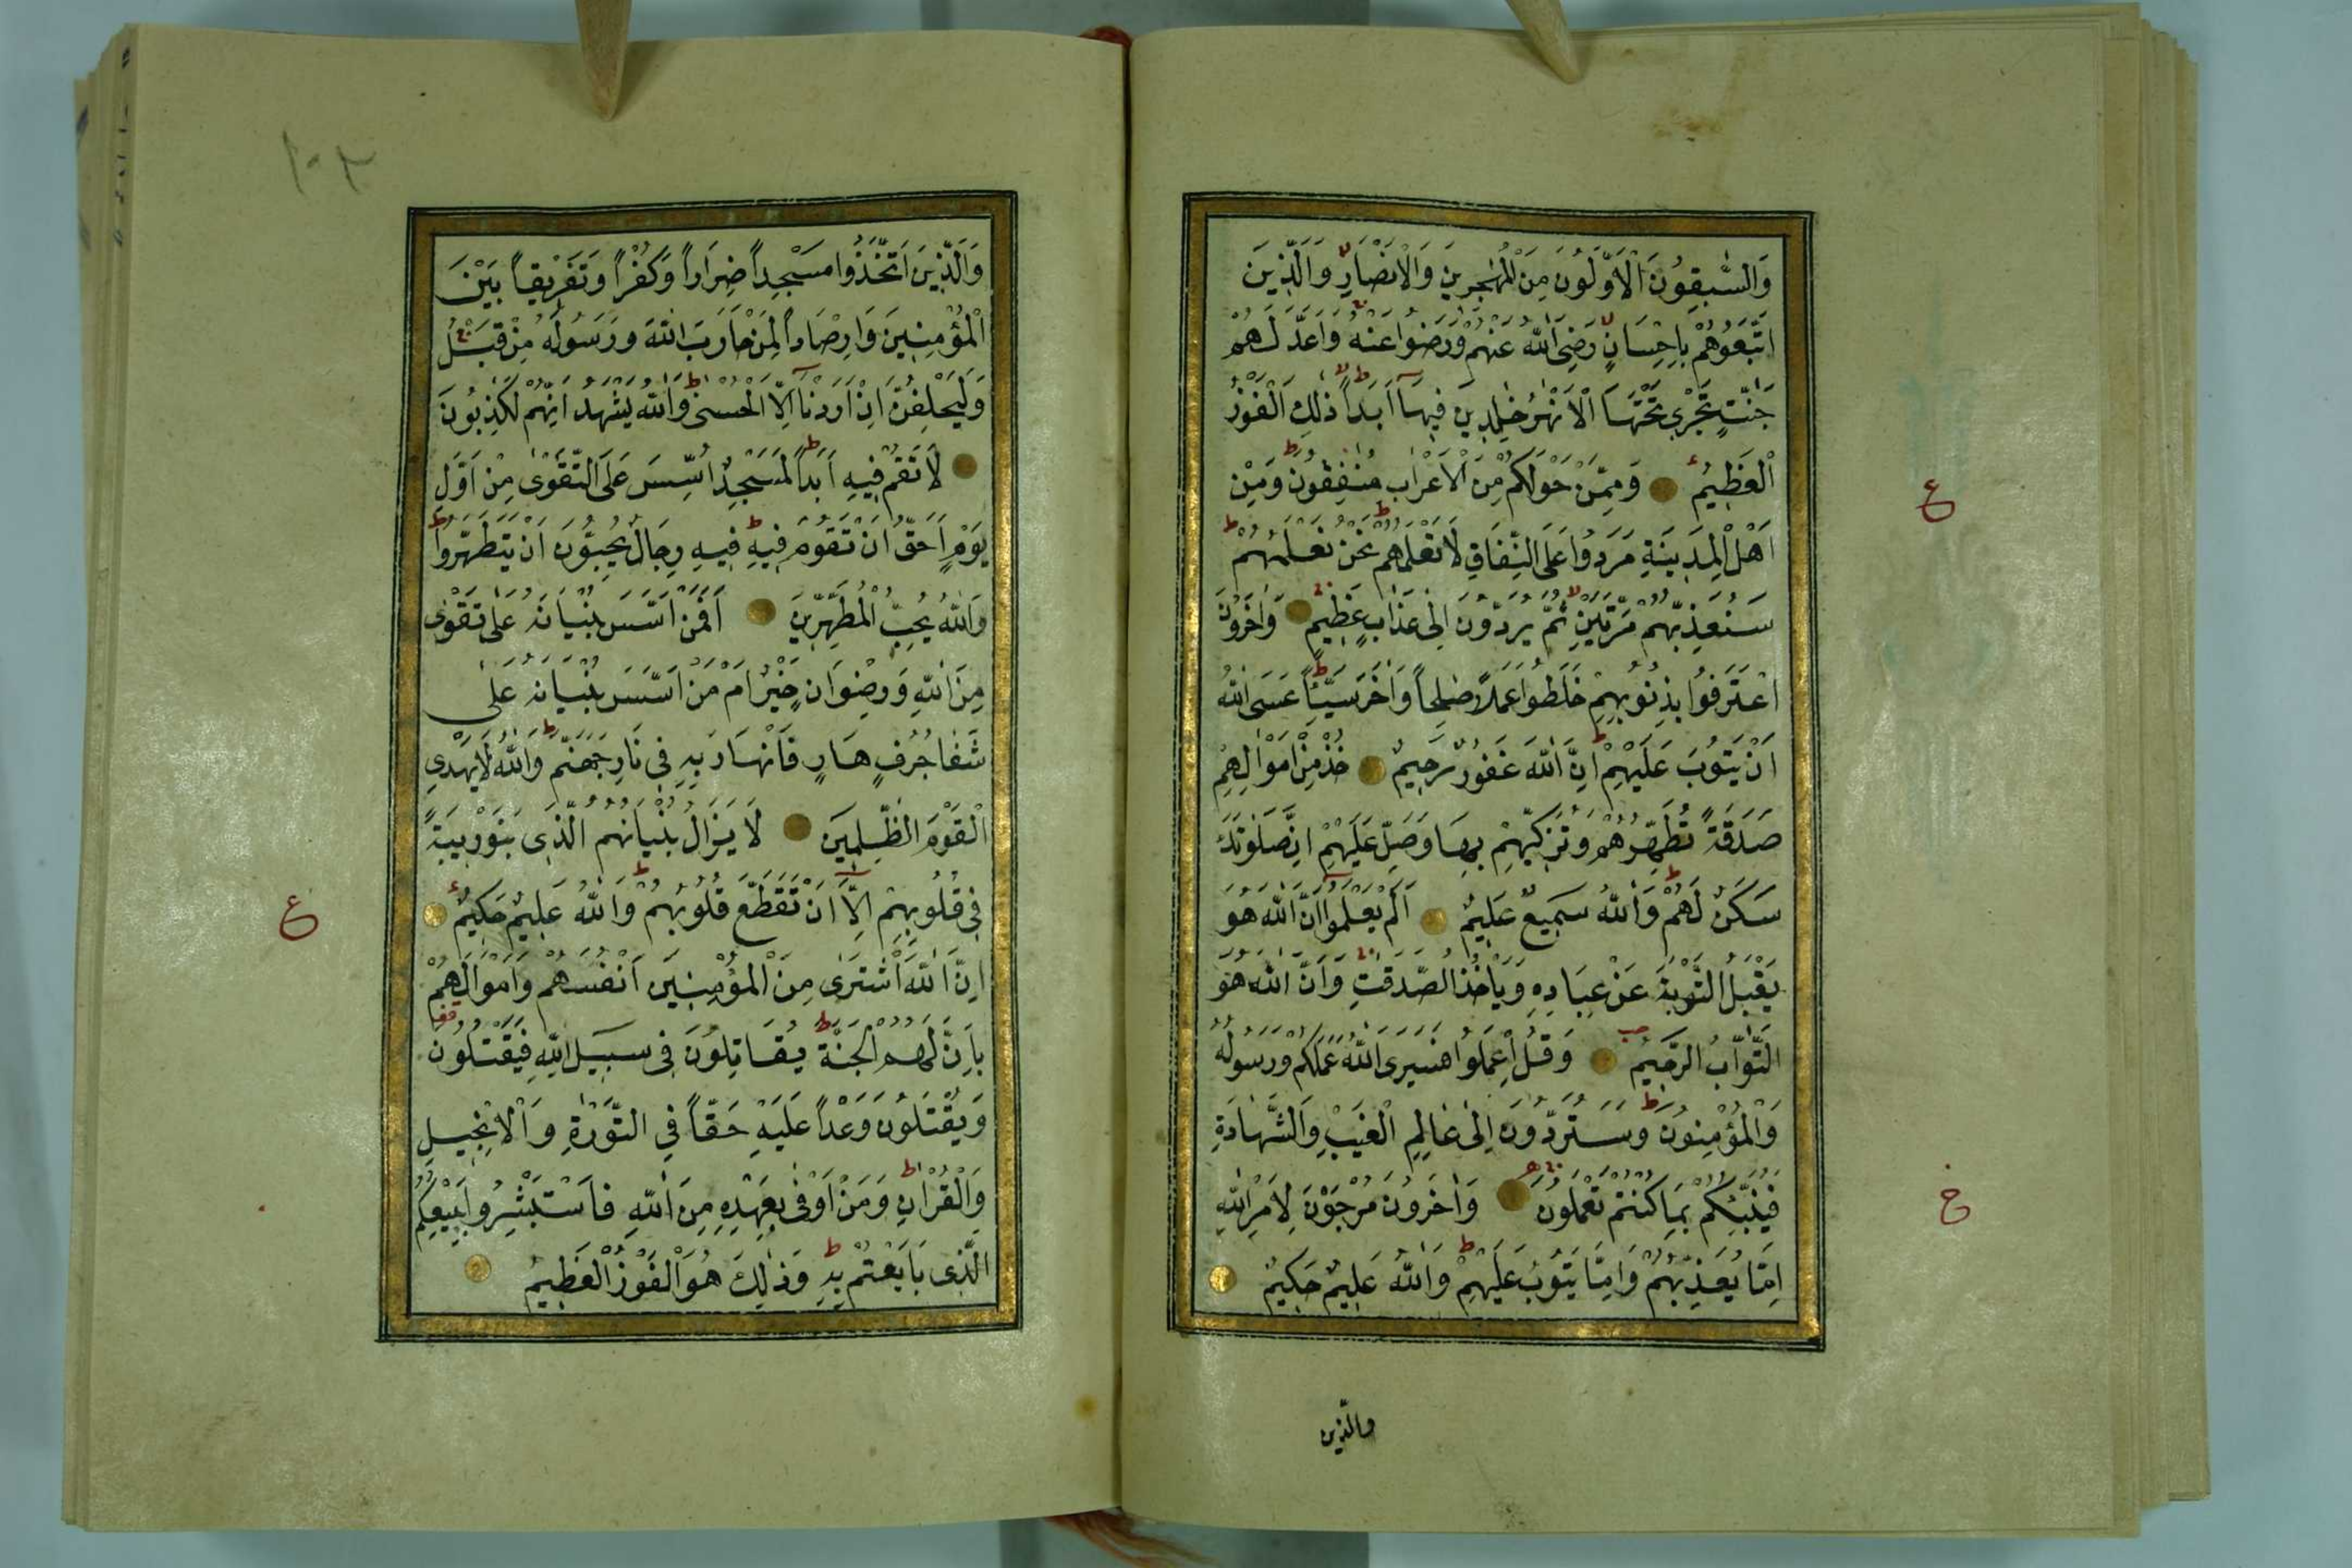 وَالسّٰبِقُونَ الْاَوَّلُونَ مِنَ الْمُهٰجِرِينَ وَالْاَنْصَارِ وَالَّذِينَ
اتَّبَعُوهُمْ بِاِحْسَانٍ رَضِيَ اللّٰهُ عَنْهُمْ وَرَضُوا عَنْهُ وَاَعَدَّ لَهُمْ
جَنّٰتٍ تَجْرِي تَحْتَهَا الْاَنْهٰرُ خٰلِدِينَ فِيهَا اَبَدًا ذٰلِكَ الْفَوْزُ
الْعَظِيمُ وَمِمَّنْ حَوْلَكُمْ مِنَ الْاَعْرَابِ مُنٰفِقُونَ وَمِنْ
اَهْلِ الْمَدِينَةِ مَرَدُوا عَلَى النِّفَاقِ لَا تَعْلَمُهُمْ نَحْنُ نَعْلَمُهُمْ
سَنُعَذِّبُهُمْ مَرَّتَيْنِ ثُمَّ يُرَدُّونَ اِلٰى عَذَابٍ عَظِيمٍ وَاٰخَرُونَ
اعْتَرَفُوا بِذُنُوبِهِمْ خَلَطُوا عَمَلًا صٰلِحًا وَاٰخَرَ سَيِّئًا عَسَى اللّٰهُ
اَنْ يَتُوبَ عَلَيْهِمْ اِنَّ اللّٰهَ غَفُورٌ رَحِيمٌ خُذْ مِنْ اَمْوَالِهِمْ
صَدَقَةً تُطَهِّرُهُمْ وَتُزَكِّيهِمْ بِهَا وَصَلِّ عَلَيْهِمْ اِنَّ صَلٰوتَكَ
سَكَنٌ لَهُمْ وَاللّٰهُ سَمِيعٌ عَلِيمٌ اَلَمْ يَعْلَمُوا اَنَّ اللّٰهَ هُوَ
يَقْبَلُ التَّوْبَةَ عَنْ عِبَادِهِ وَيَاْخُذُ الصَّدَقٰتِ وَاَنَّ اللّٰهَ هُوَ
التَّوَّابُ الرَّحِيمُ وَقُلِ اعْمَلُوا فَسَيَرَى اللّٰهُ عَمَلَكُمْ وَرَسُولُهُ
وَالْمُؤْمِنُونَ وَسَتُرَدُّونَ اِلٰى عَالِمِ الْغَيْبِ وَالشَّهَادَةِ
فَيُنَبِّئُكُمْ بِمَا كُنْتُمْ تَعْمَلُونَ وَاٰخَرُونَ مُرْجَوْنَ لِاَمْرِ اللّٰهِ
اِمَّا يُعَذِّبُهُمْ وَاِمَّا يَتُوبُ عَلَيْهِمْ وَاللّٰهُ عَلِيمٌ حَكِيمٌ
والّذين
ع
خ
١٠٣
وَالَّذِينَ اتَّخَذُوا مَسْجِدًا ضِرَارًا وَكُفْرًا وَتَفْرِيقًا بَيْنَ
الْمُؤْمِنِينَ وَاِرْصَادًا لِمَنْ حَارَبَ اللّٰهَ وَرَسُولَهُ مِنْ قَبْلُ
وَلَيَحْلِفُنَّ اِنْ اَرَدْنَا اِلَّا الْحُسْنٰى وَاللّٰهُ يَشْهَدُ اِنَّهُمْ لَكٰذِبُونَ
لَا تَقُمْ فِيهِ اَبَدًا لَمَسْجِدٌ اُسِّسَ عَلَى التَّقْوٰى مِنْ اَوَّلِ
يَوْمٍ اَحَقُّ اَنْ تَقُومَ فِيهِ فِيهِ رِجَالٌ يُحِبُّونَ اَنْ يَتَطَهَّرُوا
وَاللّٰهُ يُحِبُّ الْمُطَّهِّرِينَ اَفَمَنْ اَسَّسَ بُنْيَانَهُ عَلٰى تَقْوٰى
مِنَ اللّٰهِ وَرِضْوَانٍ خَيْرٌ اَمْ مَنْ اَسَّسَ بُنْيَانَهُ عَلٰى
شَفَا جُرُفٍ هَارٍ فَانْهَارَ بِهِ فِي نَارِ جَهَنَّمَ وَاللّٰهُ لَا يَهْدِي
الْقَوْمَ الظّٰلِمِينَ لَا يَزَالُ بُنْيَانُهُمُ الَّذِي بَنَوْا رِيبَةً
فِي قُلُوبِهِمْ اِلَّا اَنْ تَقَطَّعَ قُلُوبُهُمْ وَاللّٰهُ عَلِيمٌ حَكِيمٌ
اِنَّ اللّٰهَ اشْتَرٰى مِنَ الْمُؤْمِنِينَ اَنْفُسَهُمْ وَاَمْوَالَهُمْ
بِاَنَّ لَهُمُ الْجَنَّةَ يُقَاتِلُونَ فِي سَبِيلِ اللّٰهِ فَيَقْتُلُونَ
وَيُقْتَلُونَ وَعْدًا عَلَيْهِ حَقًّا فِي التَّوْرٰةِ وَالْاِنْجِيلِ
وَالْقُرْاٰنِ وَمَنْ اَوْفٰى بِعَهْدِهِ مِنَ اللّٰهِ فَاسْتَبْشِرُوا بِبَيْعِكُمُ
الَّذِي بَايَعْتُمْ بِهِ وَذٰلِكَ هُوَ الْفَوْزُ الْعَظِيمُ
ع